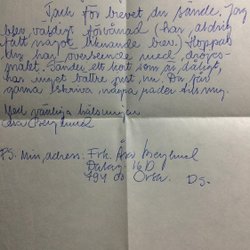 Tack för brevet du sände. Jag
blev väldigt förvånad (har aldrig
fått något liknande brev). Hoppas
du har överseende med dröjs-
målet. Sänder ett kort som är dåligt,
har inget bättre just nu. Du får
gärna skriva några rader till mig.
Med vänliga hälsningar
PS. Min adress: Frk. Åsa
794 00 Orsa. DS.